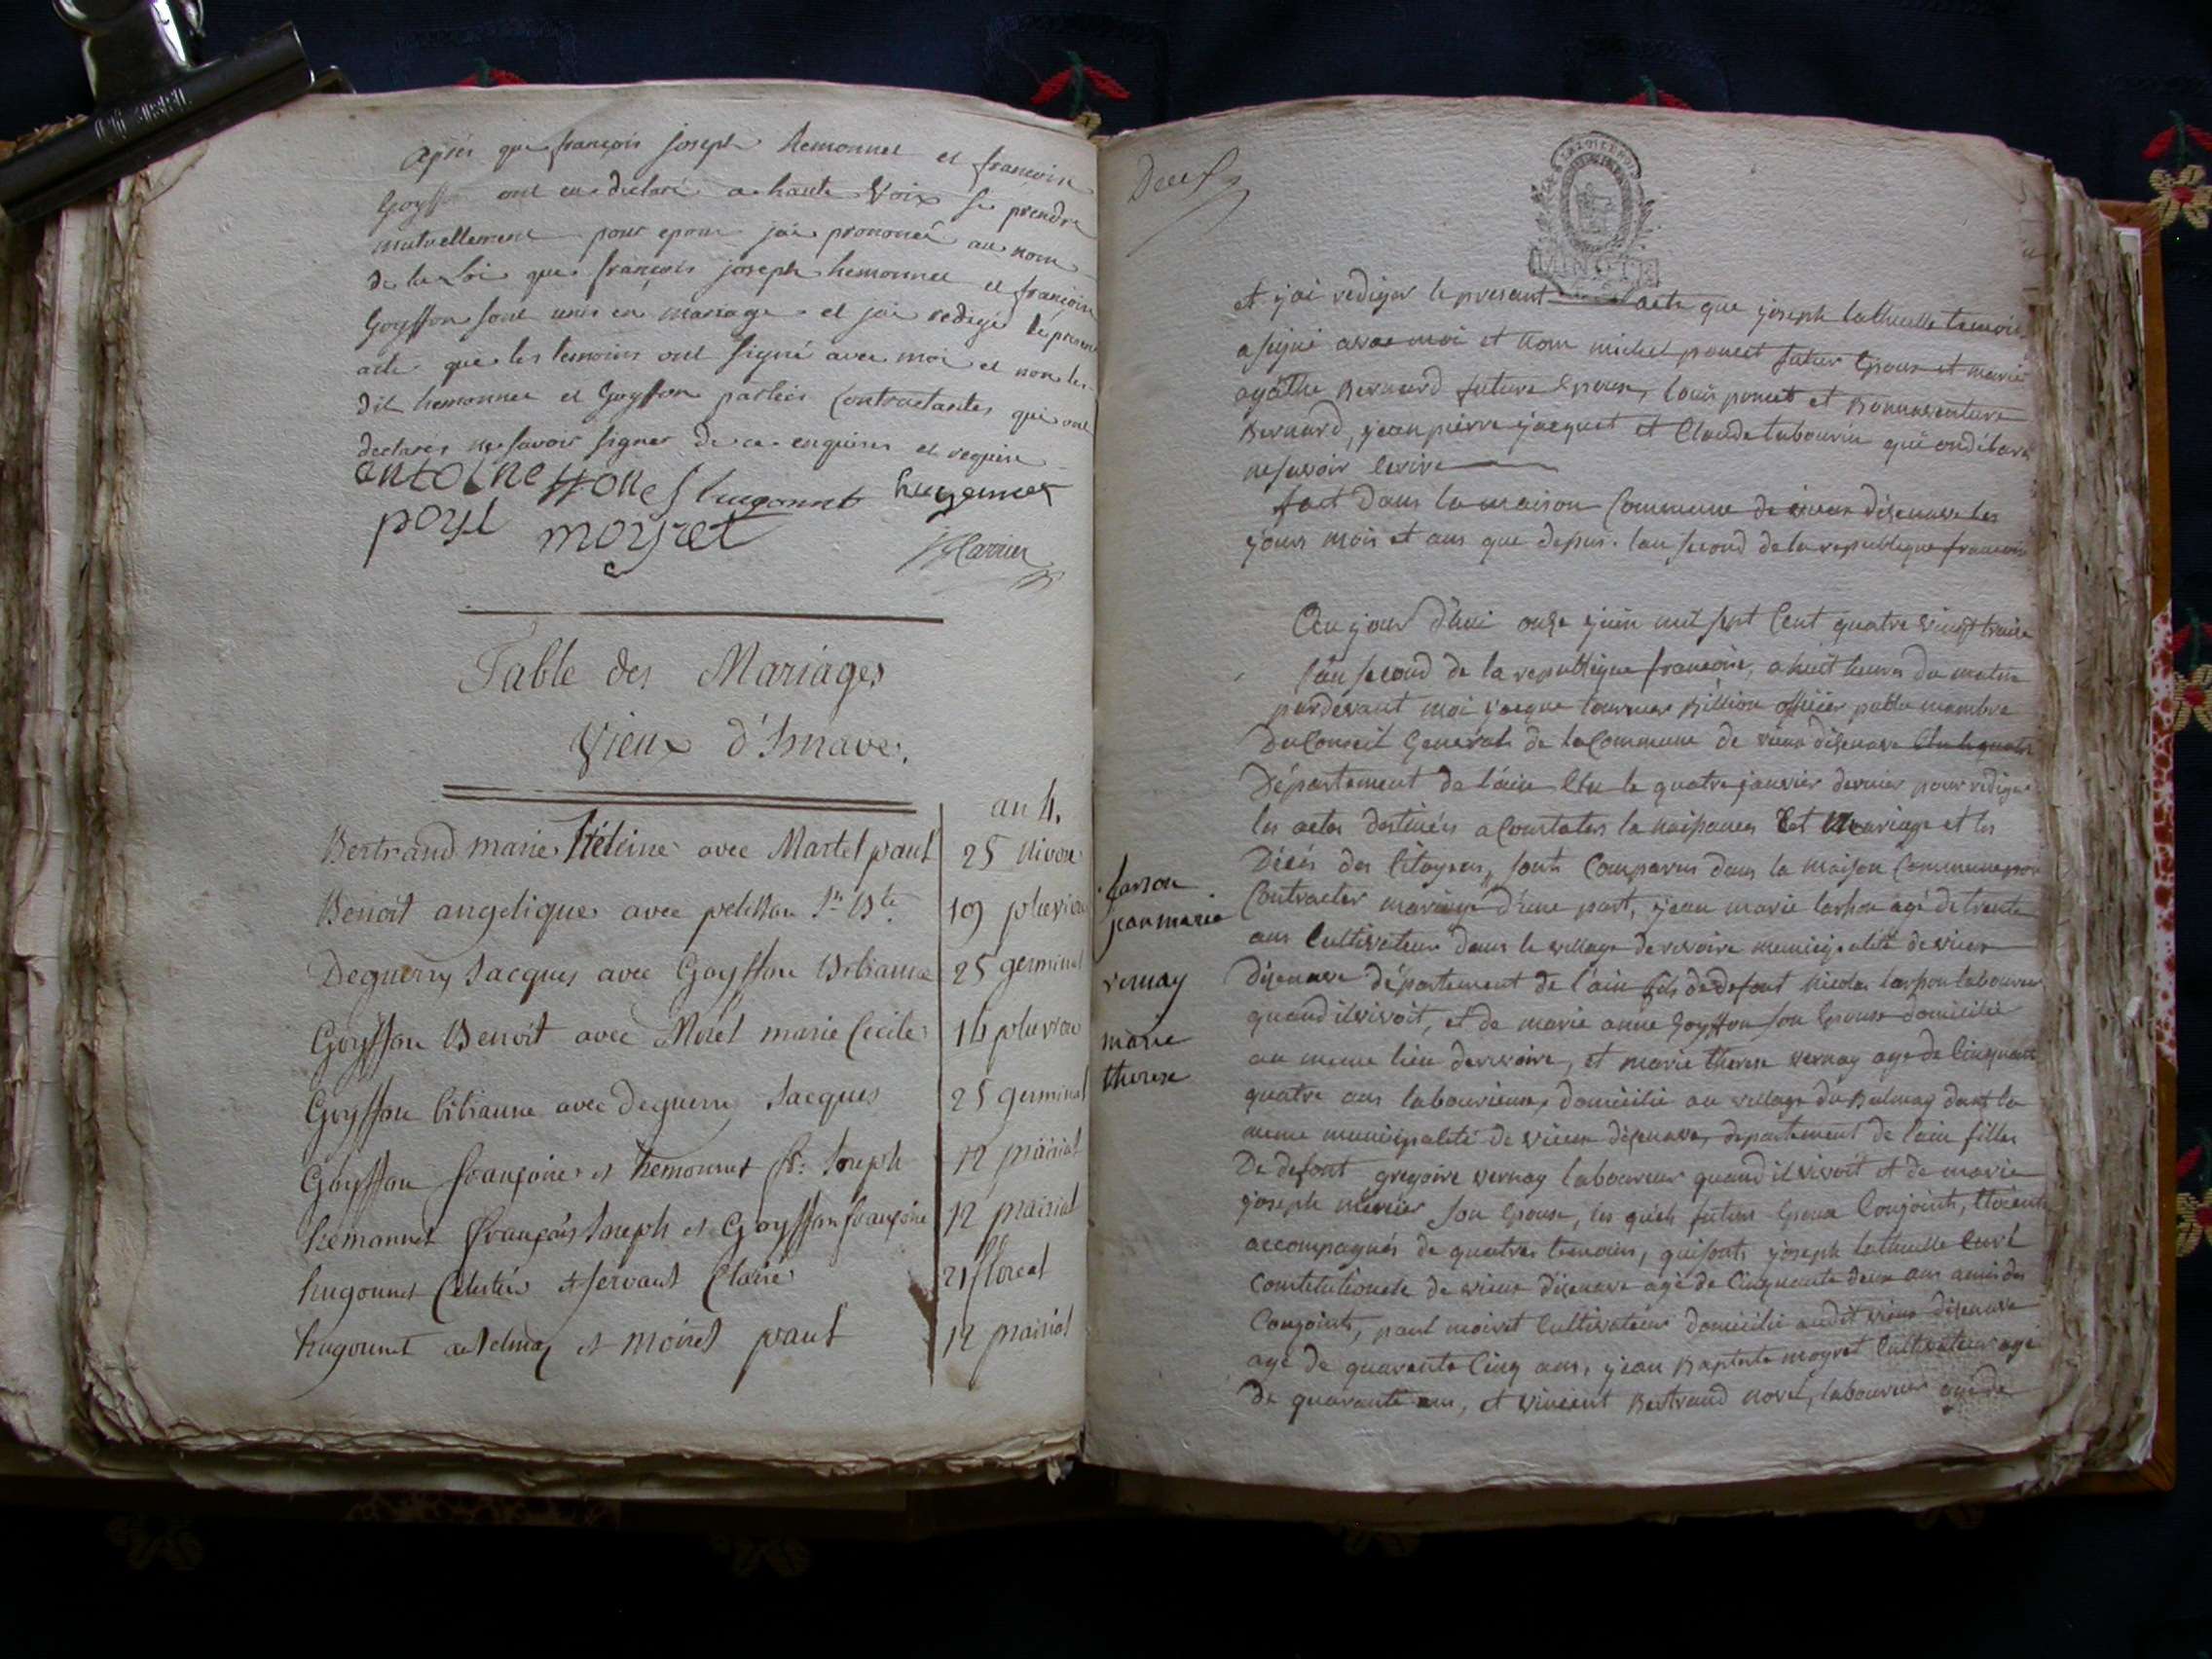 Après que françois joseph hemonnet et françoise
Goyffon ont eu declaré a haute voix se prendre
mutuellement pour epoux jai prononcé au nom
de la Loi que françois joseph hemonnet et françoise
Goyffon sont unis en mariage et jai redigé le present
acte que les temoins ont signé avec moi et non les
dit hemonnet et Goyffon parties Contractantes qui ont
declarés ne savoir signer de ce enquises et requise
antoine hugonnet hugonnet
moyret
Table des Mariages
Vieux d'Isnave.
an 4.
Bertrand marie Héleine avec Martel paul 25 nivose
Benoit angelique avec pelisson Jn Bte 19 pluviose
Deguerry Jacques avec Goyffon Bibianne 25 germinal
Goyffon Benoit avec Morel marie Cecile 16 pluviose
Goyffon bibianne avec deguerry Jacques 25 germinal
Goyffon françoise et hemonnet fs. Joseph 12 prairial
hemonnet françois Joseph et Goyffon françoise 12 prairial
hugonnet Celestin et servant Claire 21 floreal
hugonnet et moiret paul 12 prairial
Deux
et j'ai rediger le present acte que joseph lathuille temoin
a signé avec moi et non michel poncet futur Epoux et marie
agathe Bernard future Epouse, louis poncet et Bonnaventure
Bernard, jean pierre jacquet et Claude tabourin qui on déclaré
ne savoir Ecrire
fait dans la maison Commune de vieux disenave les
jours mois et ans que dessus. lan second de la republique francoise
Ceu jour d'hui onze juin mil sept Cent quatre vingt treize
l'an second de la republique francoise, a huit heures du matin
pardevant moi jacque tournier Billion officier public membre
Du Conseil General de la Commune de vieux disenave
Département de l'ain Elu le quatre janvier dernier pour rediger
les actes destinés a Constater la naissances Et Mariage et les
Décés des Citoyens, sont Comparus dans la maison Commune pour
Contracter mariage d'une part, jean marie larson agé de trente
ans Cultivateur dans le village de revoire municipalité de vieux
disenave département de l'ain fils de defont nicolas larson laboureur
quand il vivoit, et de marie anne Goyffon son Epouse domicilié
au meme lieu de revoire, et marie therese vernay agé de Cinquante
quatre ans labourieuse, domicilié au village du Balmay dans la
meme municipalité de vieux disenave, departement de l'ain fille
De defont gregoire vernay laboureur quand il vivoit et de marie
joseph mercier son Epouse, les quels futurs Epoux Conjoints, Etoient
accompagnés de quatres temoins, qui sonts joseph lathuille Curé
Constitutionele de vieux disenave agé de Cinquante deux ans amis des
Conjoints, paul moiret Cultivateur domicilié audit vieux disenave
agé de quarante Cinq ans, jean Baptiste moyret Cultivateur agé
de quarante ans, et vincent Bertrand morel, laboureur agé de
larson
jean marie
vernay
marie
therese